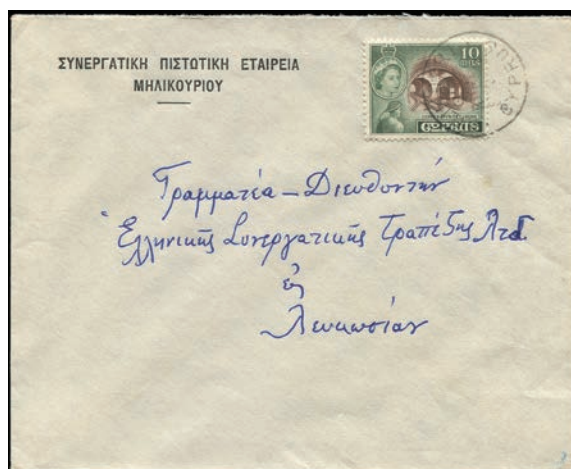 ΣΥΝΕΡΓΑΤΙΚΗ ΠΙΣΤΩΤΙΚΗ ΕΤΑΙΡΕΙΑ
ΜΗΛΙΚΟΥΡΙΟΥ
10
MILS
CYPRUS
CYPRUS
Γραμματέα – Διευθυντήν
Ἑλληνικῆς Συνεργατικῆς Τραπέζης Λτδ
εἰς
Λευκωσίαν